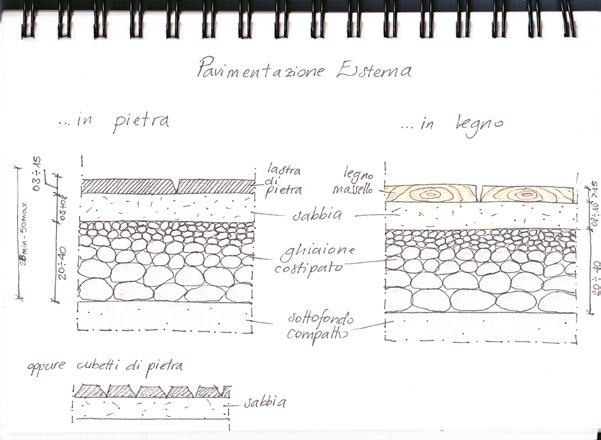 Pavimentazione Esterna
...in pietra
...in legno
03÷15
20÷40
28min-50max
lastra
di
pietra
legno
massello
sabbia
ghiaione
costipato
sottofondo
compatto
20÷40
oppure cubetti di pietra
sabbia